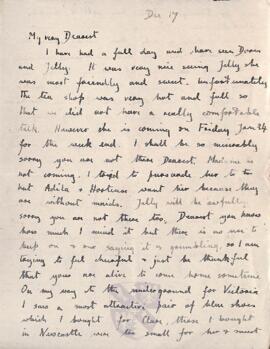 Dec 17
My very Dearest
I have had a full day and have seen Doris
and Jelly. It was very nice seeing Jelly she
was most friendly and sweet. Unfortunately
the tea shop was very hot and full so
that we did not have a really comfortable
talk. However she is coming on Friday Jan 24
for the week end. I shall be so miserably
sorry you are not there Dearest. is
not coming. I tried to persuade her to
but Adila & Hortense want her because they
are without maids. Jelly will be awfully
sorry you are not there too. Dearest you know
how much I mind it but there is no use to
keep on & one saying it is grumbling, so I am
trying to feel cheerful & just be thankful
that you are alive to come home sometime
On my way to the underground for Victoria
I saw a most attractive pair of blue shoes
which I bought for Clare, those I bought
in Newcastle were too small for her & must